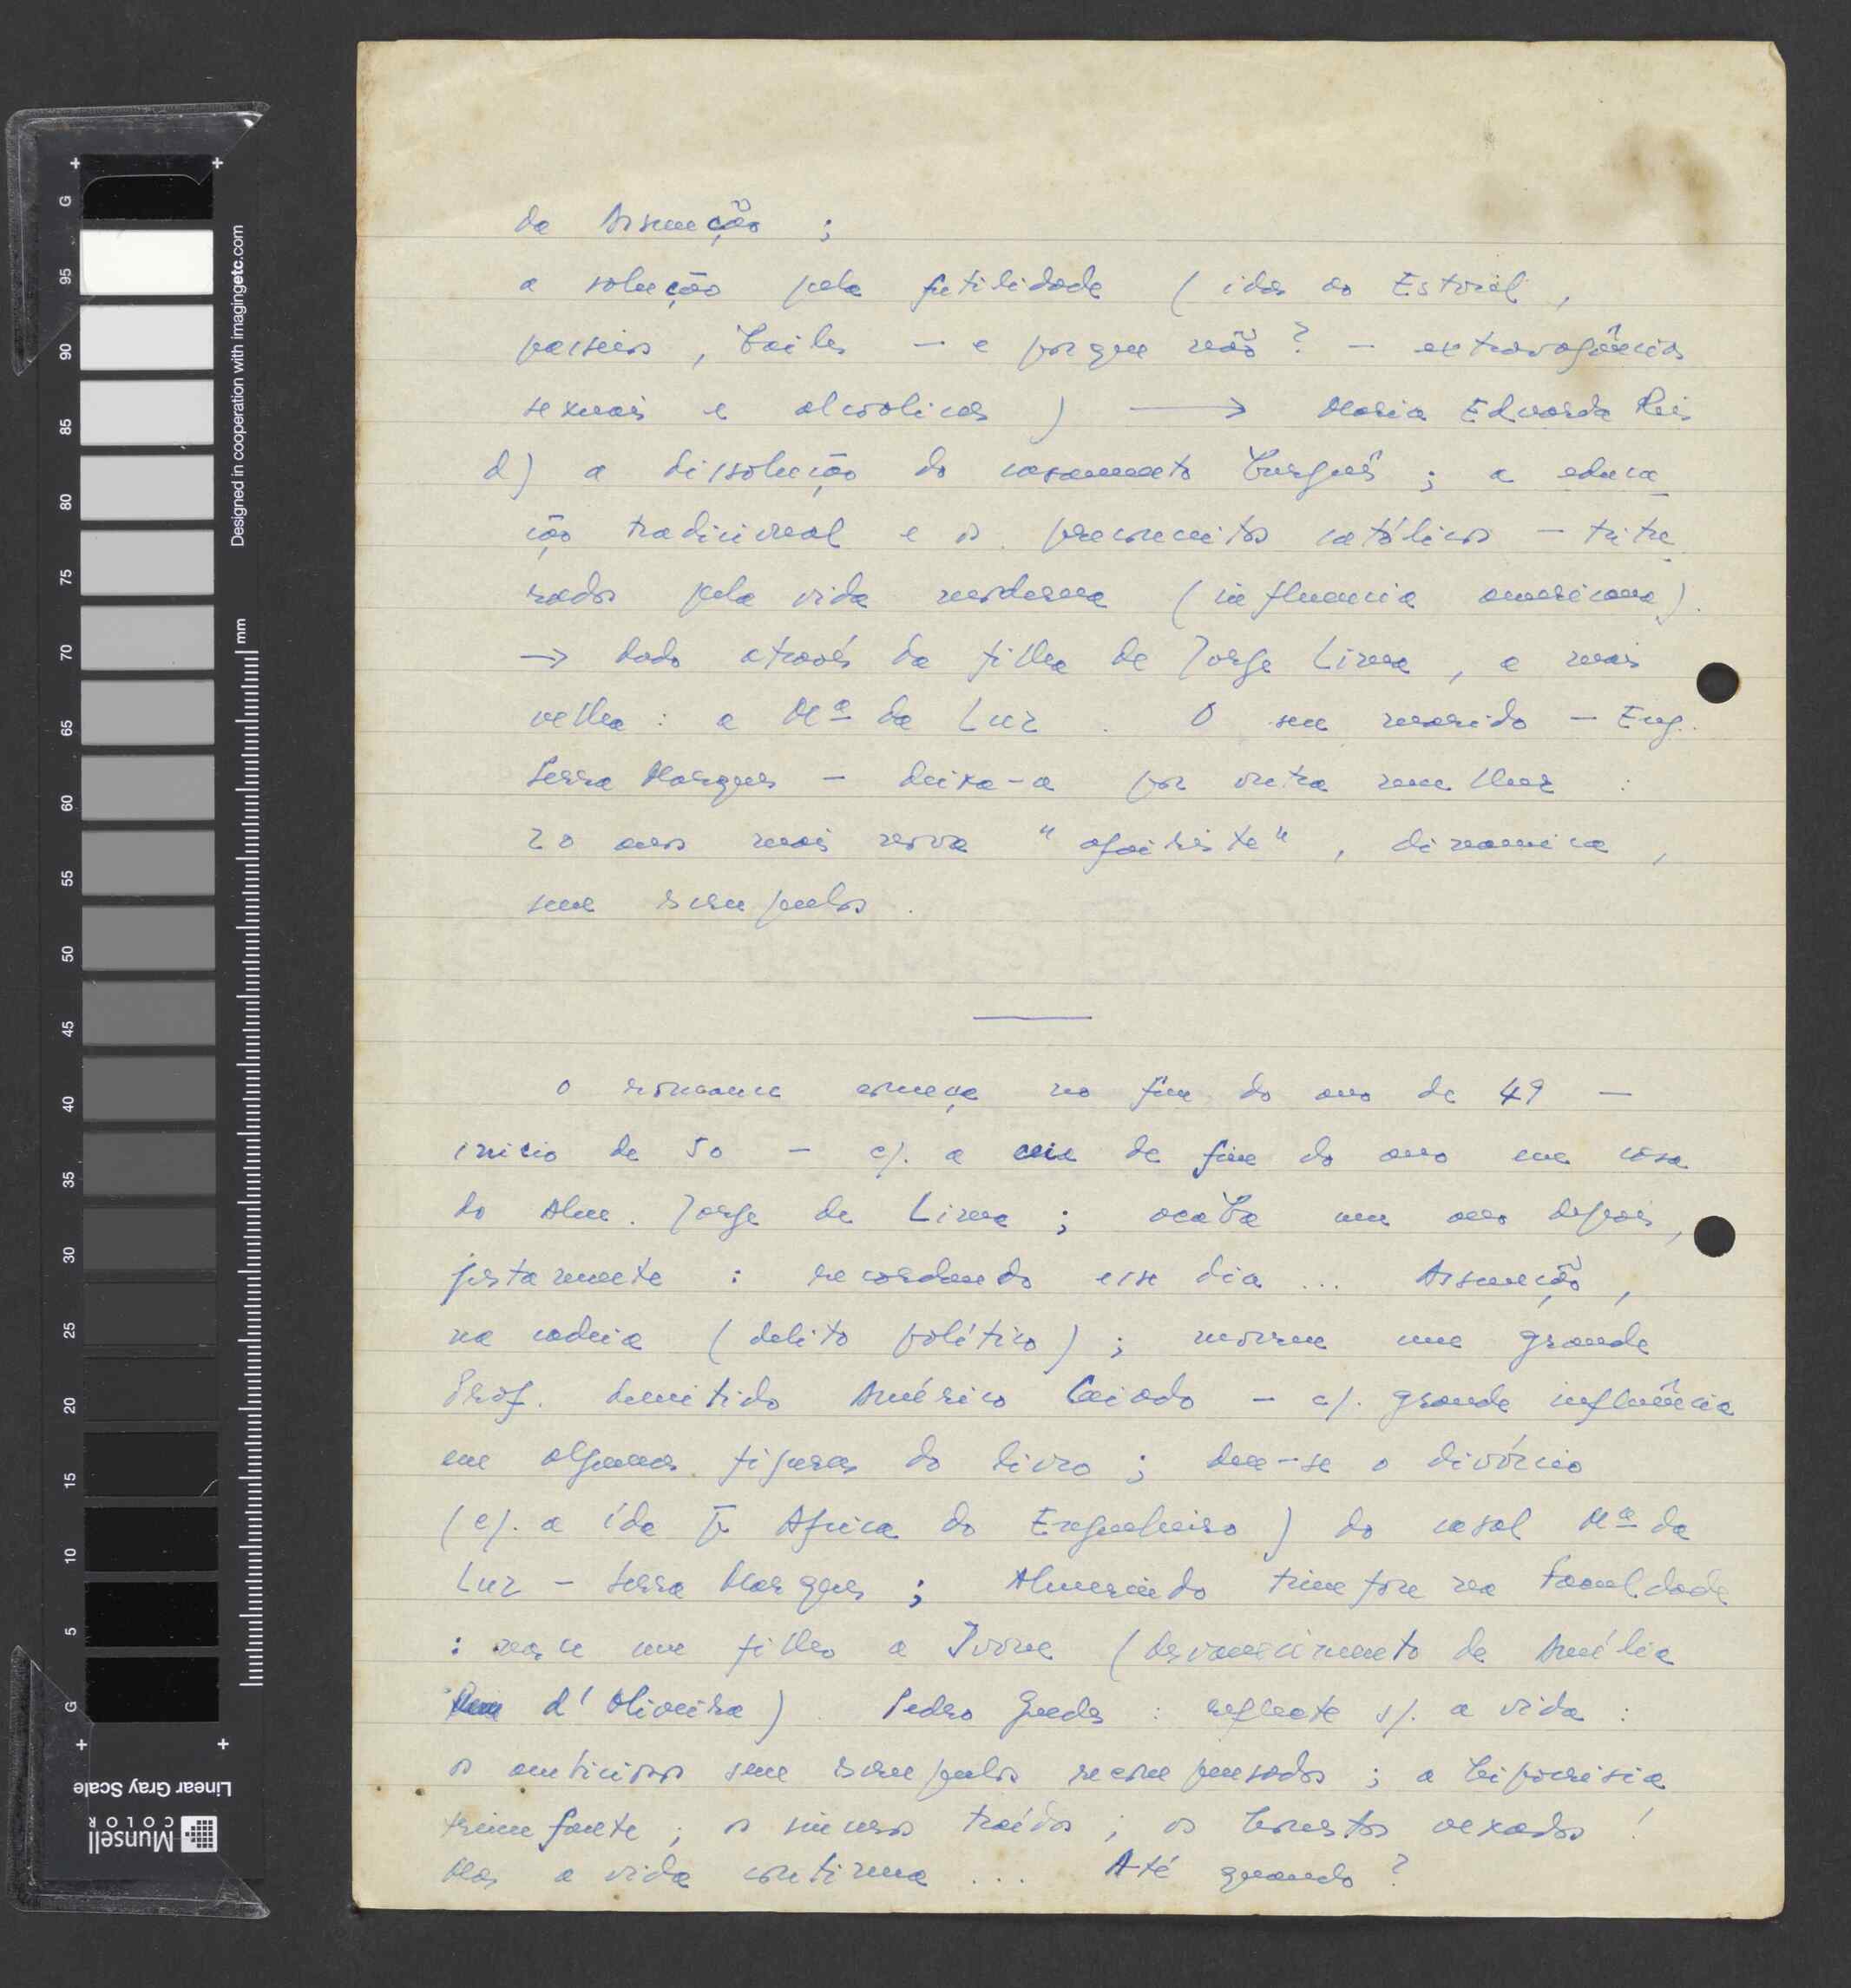 da Assunção ;
a solução pela futilidade ( idas ao Estoril ,
passeios , bailes — e porque não ? — extravagâncias
sexuais e alcoólicas ) ⟶ Maria Eduarda Reis
d) a dissolução do casamento burguês ; a educa
ção tradicional e os preconceitos católicos — tritu
rados pela vida moderna ( influencia americana ).
→ dado através da filha de Jorge Lima , a mais
velha : a Mª da Luz . O seu marido — Eng.
Serra Marques — deixa-a por outra mulher :
20 anos mais nova " afairiste " , dinamica ,
sem scrupulos .
O romance começa no fim do ano de 49 —
inicio de 50 — c/. a ceia de fim do ano em casa
do Alm. Jorge de Lima ; acaba um ano depois ,
justamente : recordando esse dia ... Assunção ,
na cadeia ( delito político ) ; morreu um grande
Prof. demitido Américo Caiado — c/. grande influência
em algumas figuras do livro ; deu-se o divórcio
( c/. a ída p. Africa do Engenheiro ) do casal Mª da
Luz — Serra Marques ; Almerindo triunfou na Faculdade
: nasce um filho a Ivone ( desvanecimento de Amélia
d' Oliveira ) . Pedro Guedes : reflecte s/. a vida :
os ambiciosos sem scrupulos recompensados ; a hipocrisia
triunfante ; os sinceros traídos ; os honestos vexados !
Mas a vida continua ... Até quando ?
Designed in cooperation with imagingetc.com
mm
G
95
90
85
80
75
70
65
60
55
50
45
40
35
30
25
20
15
10
5
G
Linear Gray Scale
Munsell
COLOR